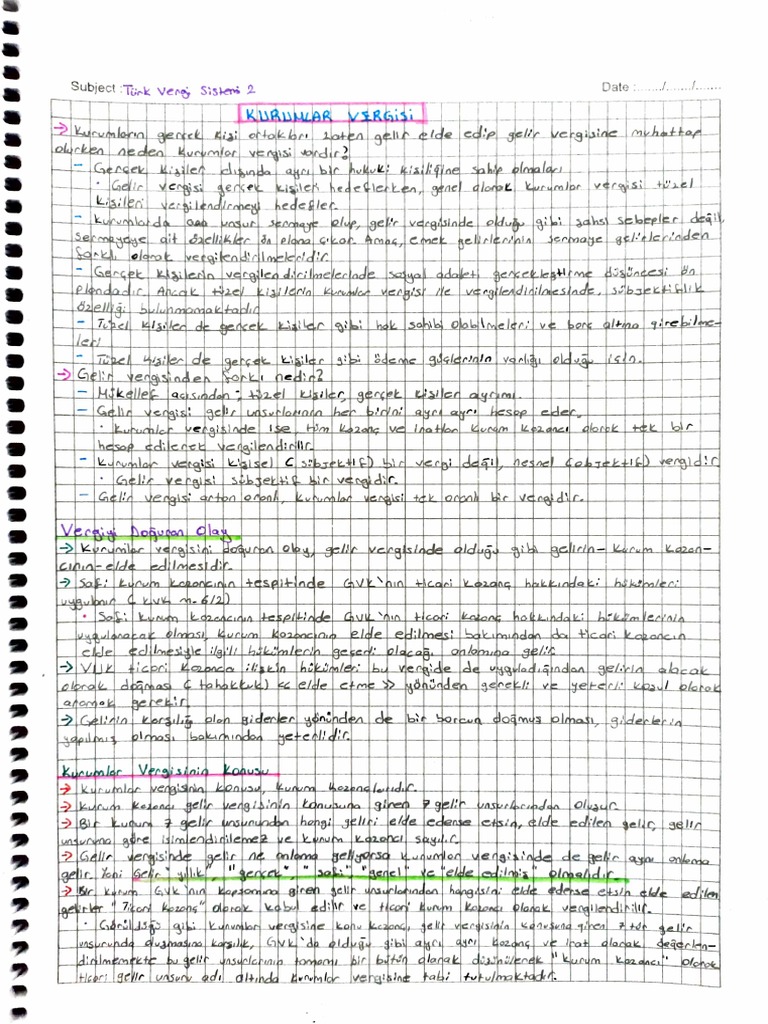 Subject : Türk Vergi Sistemi 2
Date : ....../....../......
KURUMLAR VERGİSİ
→ Kurumların gerçek kişi ortakları zaten gelir elde edip gelir vergisine muhattap
olurken neden kurumlar vergisi vardır?
- Gerçek kişiler dışında ayrı bir hukuki kişiliğine sahip olmaları
• Gelir vergisi gerçek kişileri hedeflerken, genel olarak kurumlar vergisi tüzel
kişileri vergilendirmeyi hedefler.
- Kurumlarda ana unsur sermaye olup, gelir vergisinde olduğu gibi şahsi sebepler değil,
sermayeye ait özellikler ön plana çıkar. Amaç, emek gelirlerinin sermaye gelirlerinden
farklı olarak vergilendirilmeleridir.
- Gerçek kişilerin vergilendirilmelerinde sosyal adaleti gerçekleştirme düşüncesi ön
plandadır. Ancak tüzel kişilerin kurumlar vergisi ile vergilendirilmesinde, sübjektiflik
özelliği bulunmamaktadır.
- Tüzel kişiler de gerçek kişiler gibi hak sahibi olabilmeleri ve borç altına girebilme-
leri
- Tüzel kişiler de gerçek kişiler gibi ödeme güçlerinin varlığı olduğu için.
→ Gelir vergisinden farkı nedir?
- Mükellef açısından; tüzel kişiler, gerçek kişiler ayrımı.
- Gelir vergisi gelir unsurlarının her birini ayrı ayrı hesap eder.
• Kurumlar vergisinde ise, tüm kazanç ve iratlar kurum kazancı olarak tek bir
hesap edilerek vergilendirilir.
- Kurumlar vergisi kişisel (sübjektif) bir vergi değil, nesnel (objektif) vergidir.
• Gelir vergisi sübjektif bir vergidir.
- Gelir vergisi artan oranlı, kurumlar vergisi tek oranlı bir vergidir.
Vergiyi Doğuran Olay
→ Kurumlar vergisini doğuran olay, gelir vergisinde olduğu gibi gelirin-kurum kazan-
cının-elde edilmesidir.
→ Safi kurum kazancının tespitinde GVK'nın ticari kazanç hakkındaki hükümleri
uygulanır (KVK m.6/2)
• Safi kurum kazancının tespitinde GVK'nın ticari kazanç hakkındaki hükümlerinin
uygulanacak olması, kurum kazancının elde edilmesi bakımından da ticari kazancın
elde edilmesiyle ilgili hükümlerin geçerli olacağı anlamına gelir.
→ VUK ticari kazanca ilişkin hükümleri bu vergide de uyguladığından gelirin alacak
olarak doğması (tahakkuk) << elde etme >> yönünden gerekli ve yeterli koşul olarak
aramak gerekir.
→ Gelirin karşılığı olan giderler yönünden de bir borcun doğmuş olması, giderlerin
yapılmış olması bakımından yeterlidir.
Kurumlar Vergisinin Konusu
→ Kurumlar vergisinin konusu, kurum kazançlarıdır.
→ Kurum kazancı gelir vergisinin konusuna giren 7 gelir unsurlarından oluşur.
→ Bir kurum 7 gelir unsurundan hangi geliri elde ederse etsin, elde edilen gelir, gelir
unsuruna göre isimlendirilemez ve kurum kazancı sayılır.
→ Gelir vergisinde gelir ne anlama geliyorsa kurumlar vergisinde de gelir aynı anlama
gelir. Yani Gelir "yıllık", "gerçek", "safi", "genel" ve "elde edilmiş" olmalıdır.
→ Bir kurum GVK'nın kapsamına giren gelir unsurlarından hangisini elde ederse etsin elde edilen
gelirler "Ticari kazanç" olarak kabul edilir ve ticari kurum kazancı olarak vergilendirilir.
• Görüldüğü gibi kurumlar vergisine konu kazanç, gelir vergisinin konusuna giren 7 tür gelir
unsurunda oluşmasına karşılık, GVK'da olduğu gibi ayrı ayrı kazanç ve irat olarak değerlen-
dirilmemekte bu gelir unsurlarının tamamı bir bütün olarak düşünülerek "kurum kazancı" olarak
ticari gelir unsuru adı altında kurumlar vergisine tabi tutulmaktadır.